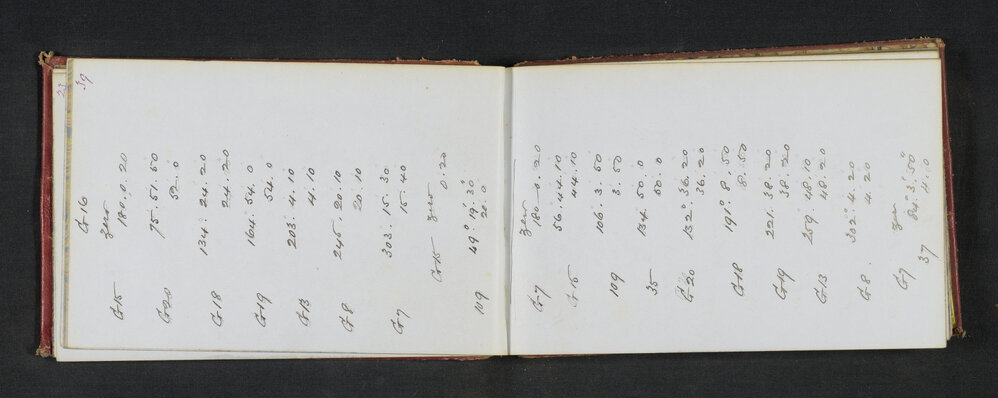 23
39
G16
zero
G15 180.0.20
G20 75.51.50
52.0
G18 134.24.20
24.20
G19 164.54.0
54.0
G13 203.4.10
4.10
G8 245.20.10
20.10
G7 303.15.30
15.40
G15 zero
0.20
119 49°.19'.30
20.0
zero
G7 180.0.20
G15 56.44.10
44.10
109 106.3.50
3.50
35 134.50.0
50.0
G20 132°.36.20
36.20
G18 191°.8.50
8.50
G19 221.38.20
38.20
G13 259.48.10
48.20
G8. 302°.4.20
4.20
G7 zero
37 84°.3'.50"
4.0